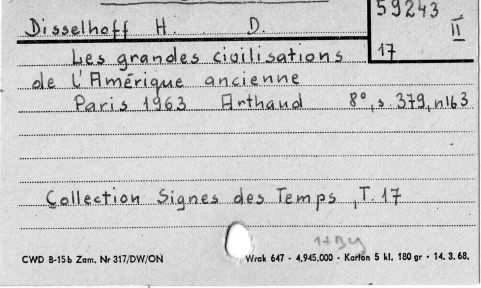 59243
II
17
Disselhoff H. D.
Les grandes civilisations
de l'Amérique ancienne
Paris 1963 Arthaud 8°, s. 379, nlb3
Collection Signes des Temps, T. 17
CWD B-15b Zam. Nr 317/DW/ON
Wrak 647 - 4.945.000 - Karton 5 kl. 180 gr - 14. 3. 68.